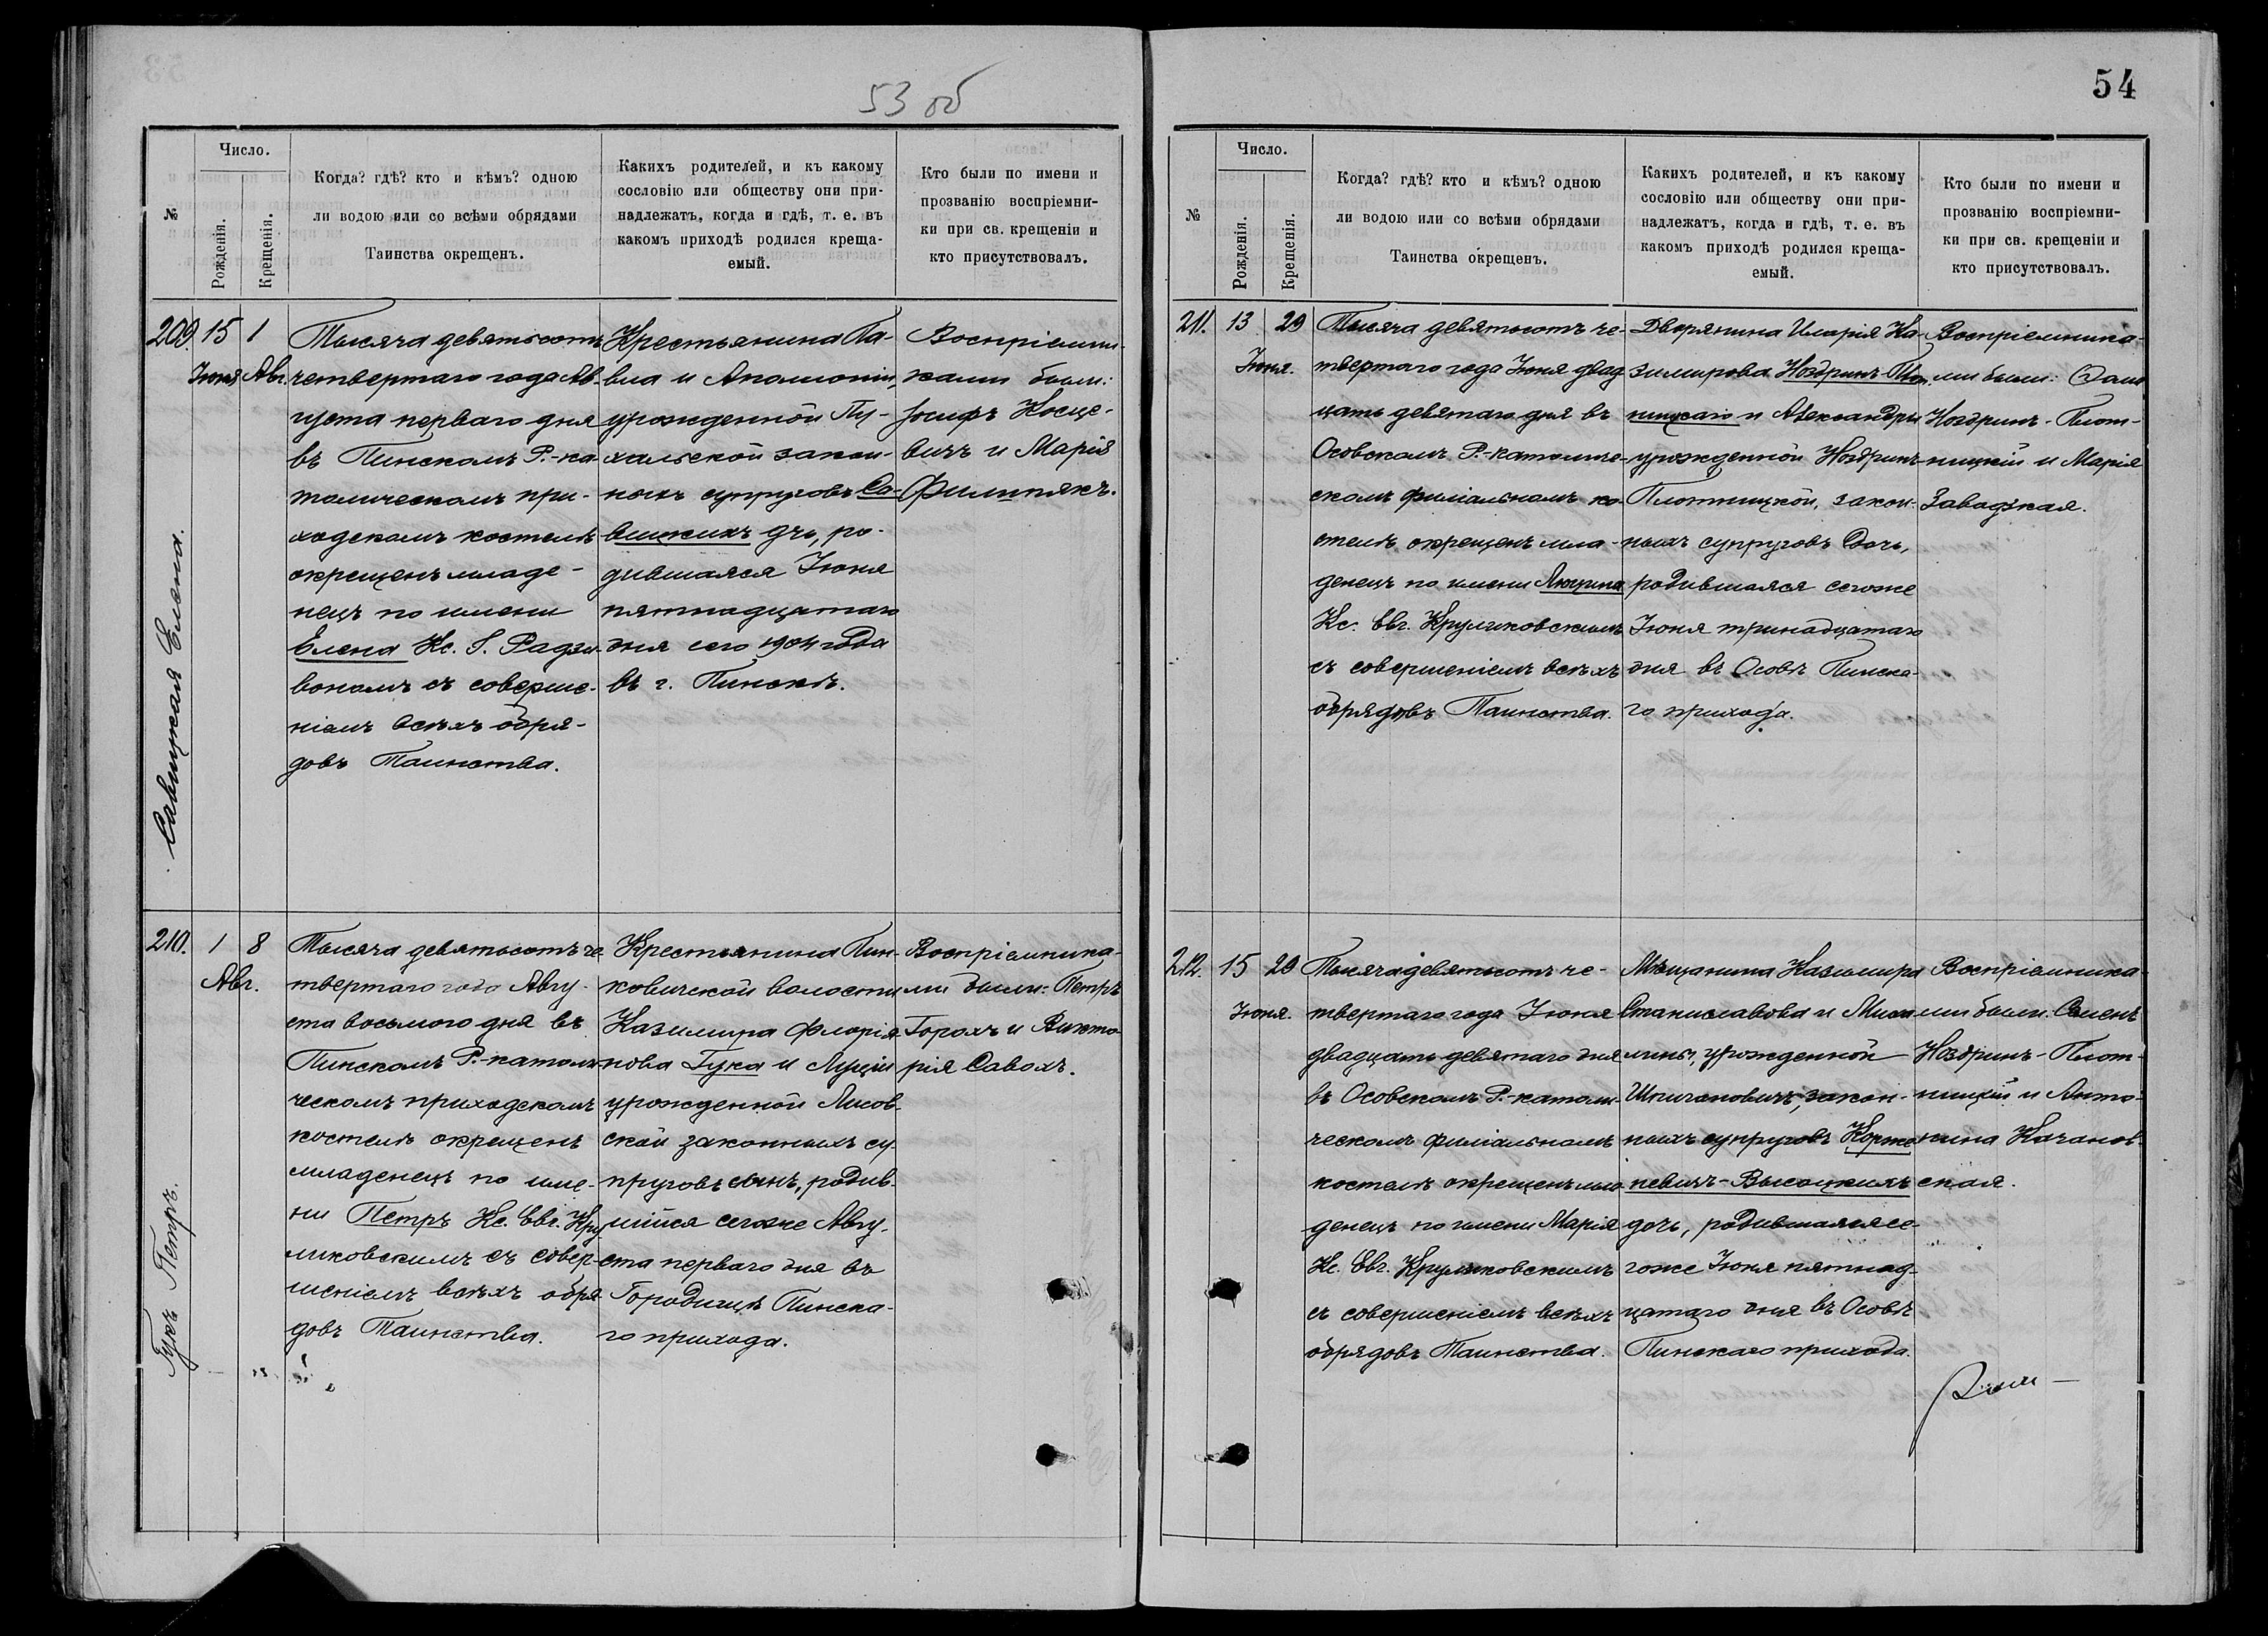 53 об
№
Число.
Рожденія.
Крещенія.
Когда? гдѣ? кто и кѣмъ? одною
ли водою или со всѣми обрядами
Таинства окрещенъ.
Какихъ родителей, и къ какому
сословію или обществу они при-
надлежатъ, когда и гдѣ, т. е. въ
какомъ приходѣ родился креща-
емый.
Кто были по имени и
прозванію воспріемни-
ки при св. крещеніи и
кто присутствовалъ.
Савицкая Елена.
209.
15
Іюня
1
Авг.
Тысяча девятьсотъ
четвертаго года Ав-
густа перваго дня
въ Пинскомъ Р.-ка-
толическомъ при-
ходскомъ костелѣ
окрещенъ младе-
нецъ по имени
Елена Кс. І. Радзи-
вономъ съ соверше-
ніемъ всѣхъ обря-
довъ Таинства.
Крестьянина Па-
вла и Аполлоніи,
урожденной Пу-
хальской закон-
ныхъ супруговъ Са-
вицкихъ дчь, ро-
дившаяся Іюня
пятнадцатаго
дня сего 1904 года
въ г. Пинскѣ.
Воспріемни-
ками были:
Іосифъ Косце-
вичъ и Марія
Филипякъ.
Гукъ Петръ.
210.
1
Авг.
8
Тысяча девятьсотъ че-
твертаго года Авгу-
ста восьмого дня въ
Пинскомъ Р.-католи-
ческомъ приходскомъ
костелѣ окрещенъ
младенецъ по име-
ни Петръ Кс. Евг. Кру-
ликовскимъ съ совер-
шеніемъ всѣхъ обря-
довъ Таинства.
Крестьянина Пин-
ковичской волости
Казимира Флорія-
нова Гука и Луціи
урожденной Лисов-
ской законныхъ су-
пруговъ сынъ, родив-
шійся сегоже Авгу-
ста перваго дня въ
Городищѣ Пинска-
го прихода.
Воспріемника-
ми были: Петръ
Горохъ и Викто-
рія Савохъ.
54
№
Число.
Рожденія.
Крещенія.
Когда? гдѣ? кто и кѣмъ? одною
ли водою или со всѣми обрядами
Таинства окрещенъ.
Какихъ родителей, и къ какому
сословію или обществу они при-
надлежатъ, когда и гдѣ, т. е. въ
какомъ приходѣ родился креща-
емый.
Кто были по имени и
прозванію воспріемни-
ки при св. крещеніи и
кто присутствовалъ.
211.
13
Іюня.
29
Тысяча девятьсотъ че-
твертаго года Іюня двад-
цать девятаго дня въ
Осовскомъ Р.-католиче-
скомъ филіальномъ ко-
стелѣ окрещенъ мла-
денецъ по имени Люцина
Кс. Евг. Круликовскимъ
съ совершеніемъ всѣхъ
обрядовъ Таинства.
Дворянина Иларія Ка-
зимирова Ноздринъ-Плот-
ницкаго и Александры
урожденной Ноздринъ-
Плотницкой, закон-
ныхъ супруговъ дочь,
родившаяся сегоже
Іюня тринадцатаго
дня въ Осовѣ Пинска-
го прихода.
Воспріемника-
ми были:
Ноздринъ-Плот-
ницкій и Марія
Завадзкая.
212.
15
Іюня.
29
Тысяча девятьсотъ че-
твертаго года Іюня
двадцать девятаго дня
въ Осовскомъ Р.-католи-
ческомъ филіальномъ
костелѣ окрещенъ мла-
денецъ по имени Марія
Кс. Евг. Круликовскимъ
съ совершеніемъ всѣхъ
обрядовъ Таинства.
Мѣщанина Казимира
Станиславова и
урожденной
закон-
ныхъ супруговъ Корже-
невичъ-Высоцкихъ
дочь, родившаяся се-
гоже Іюня пятнад-
цатаго дня въ Осовѣ
Пинскаго прихода.
Воспріемника-
ми были: Семенъ
Ноздринъ-Плот-
ницкій и Анто-
нина Качанов-
ская.